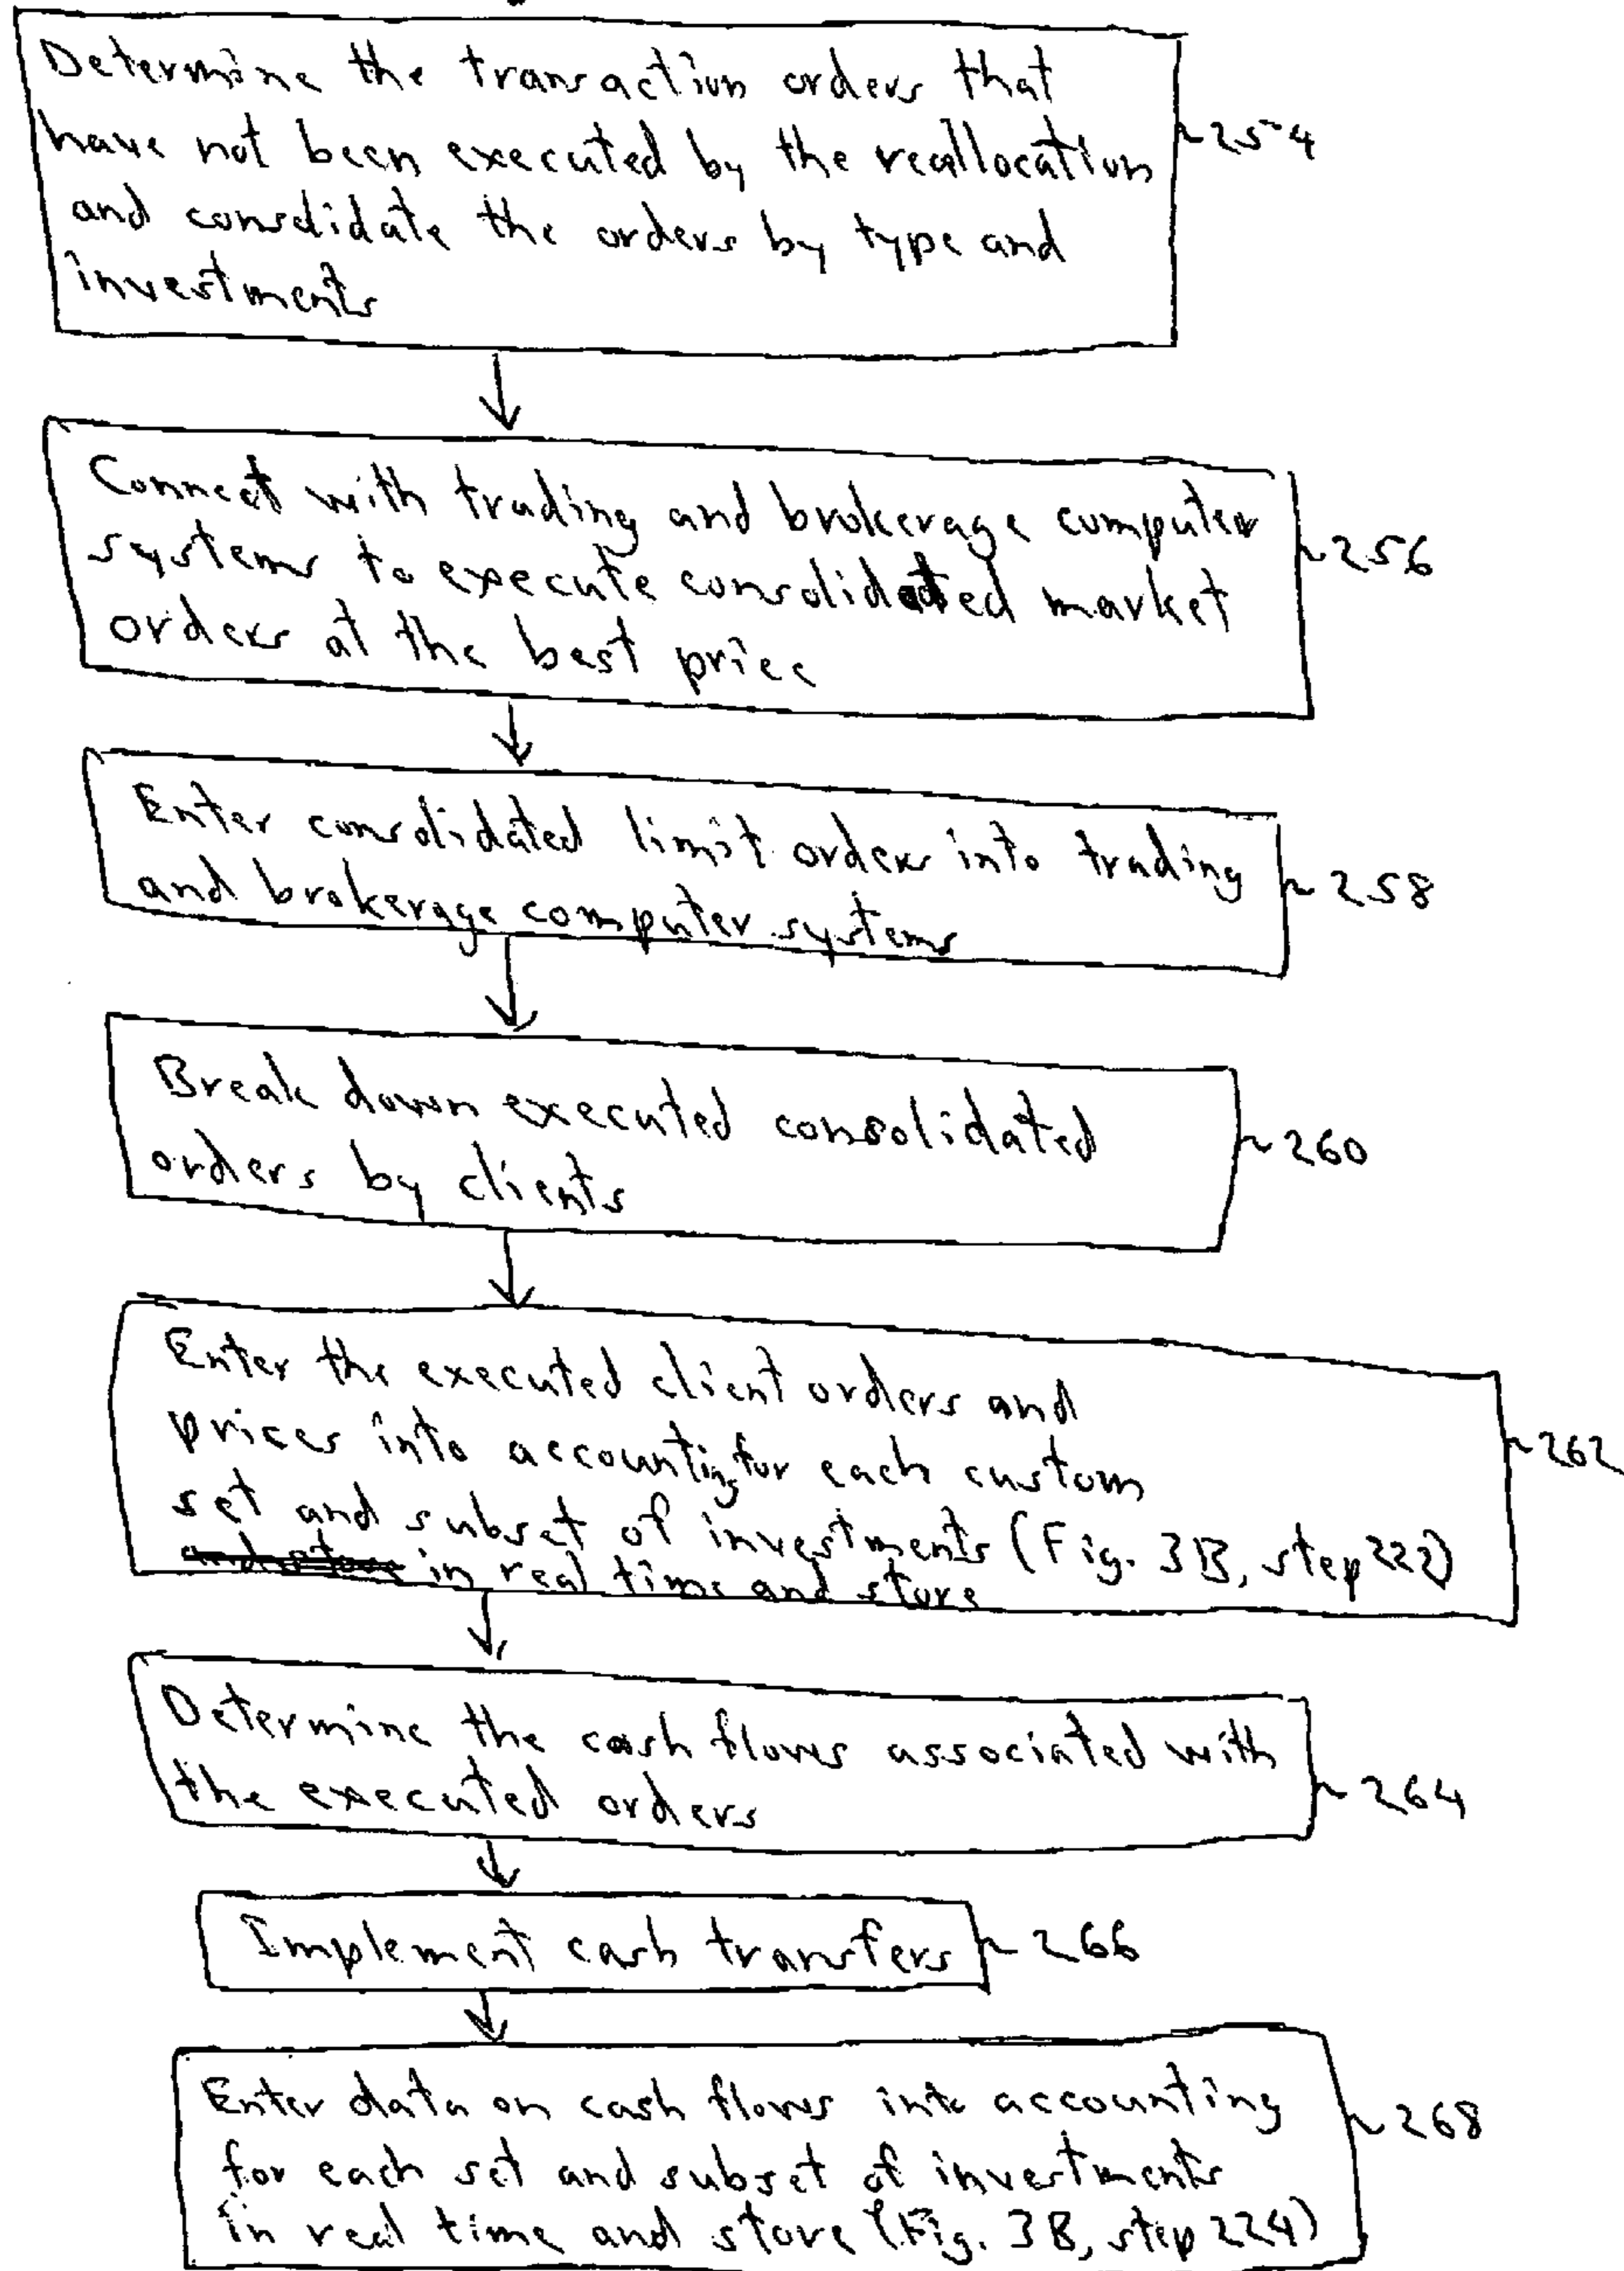 Determine the transaction orders that
have not been executed by the reallocation
and consolidate the orders by type and
investments
254
Connect with trading and brokerage computer
systems to execute consolidated market
orders at the best price
256
Enter consolidated limit orders into trading
and brokerage computer systems
258
Break down executed consolidated
orders by clients
260
Enter the executed client orders and
prices into accounting for each custom
set and subset of investments (Fig. 3B, step 222)
in real time and store
262
Determine the cash flows associated with
the executed orders
264
Implement cash transfers
266
Enter data on cash flows into accounting
for each set and subset of investments
in real time and store (Fig. 3B, step 224)
268